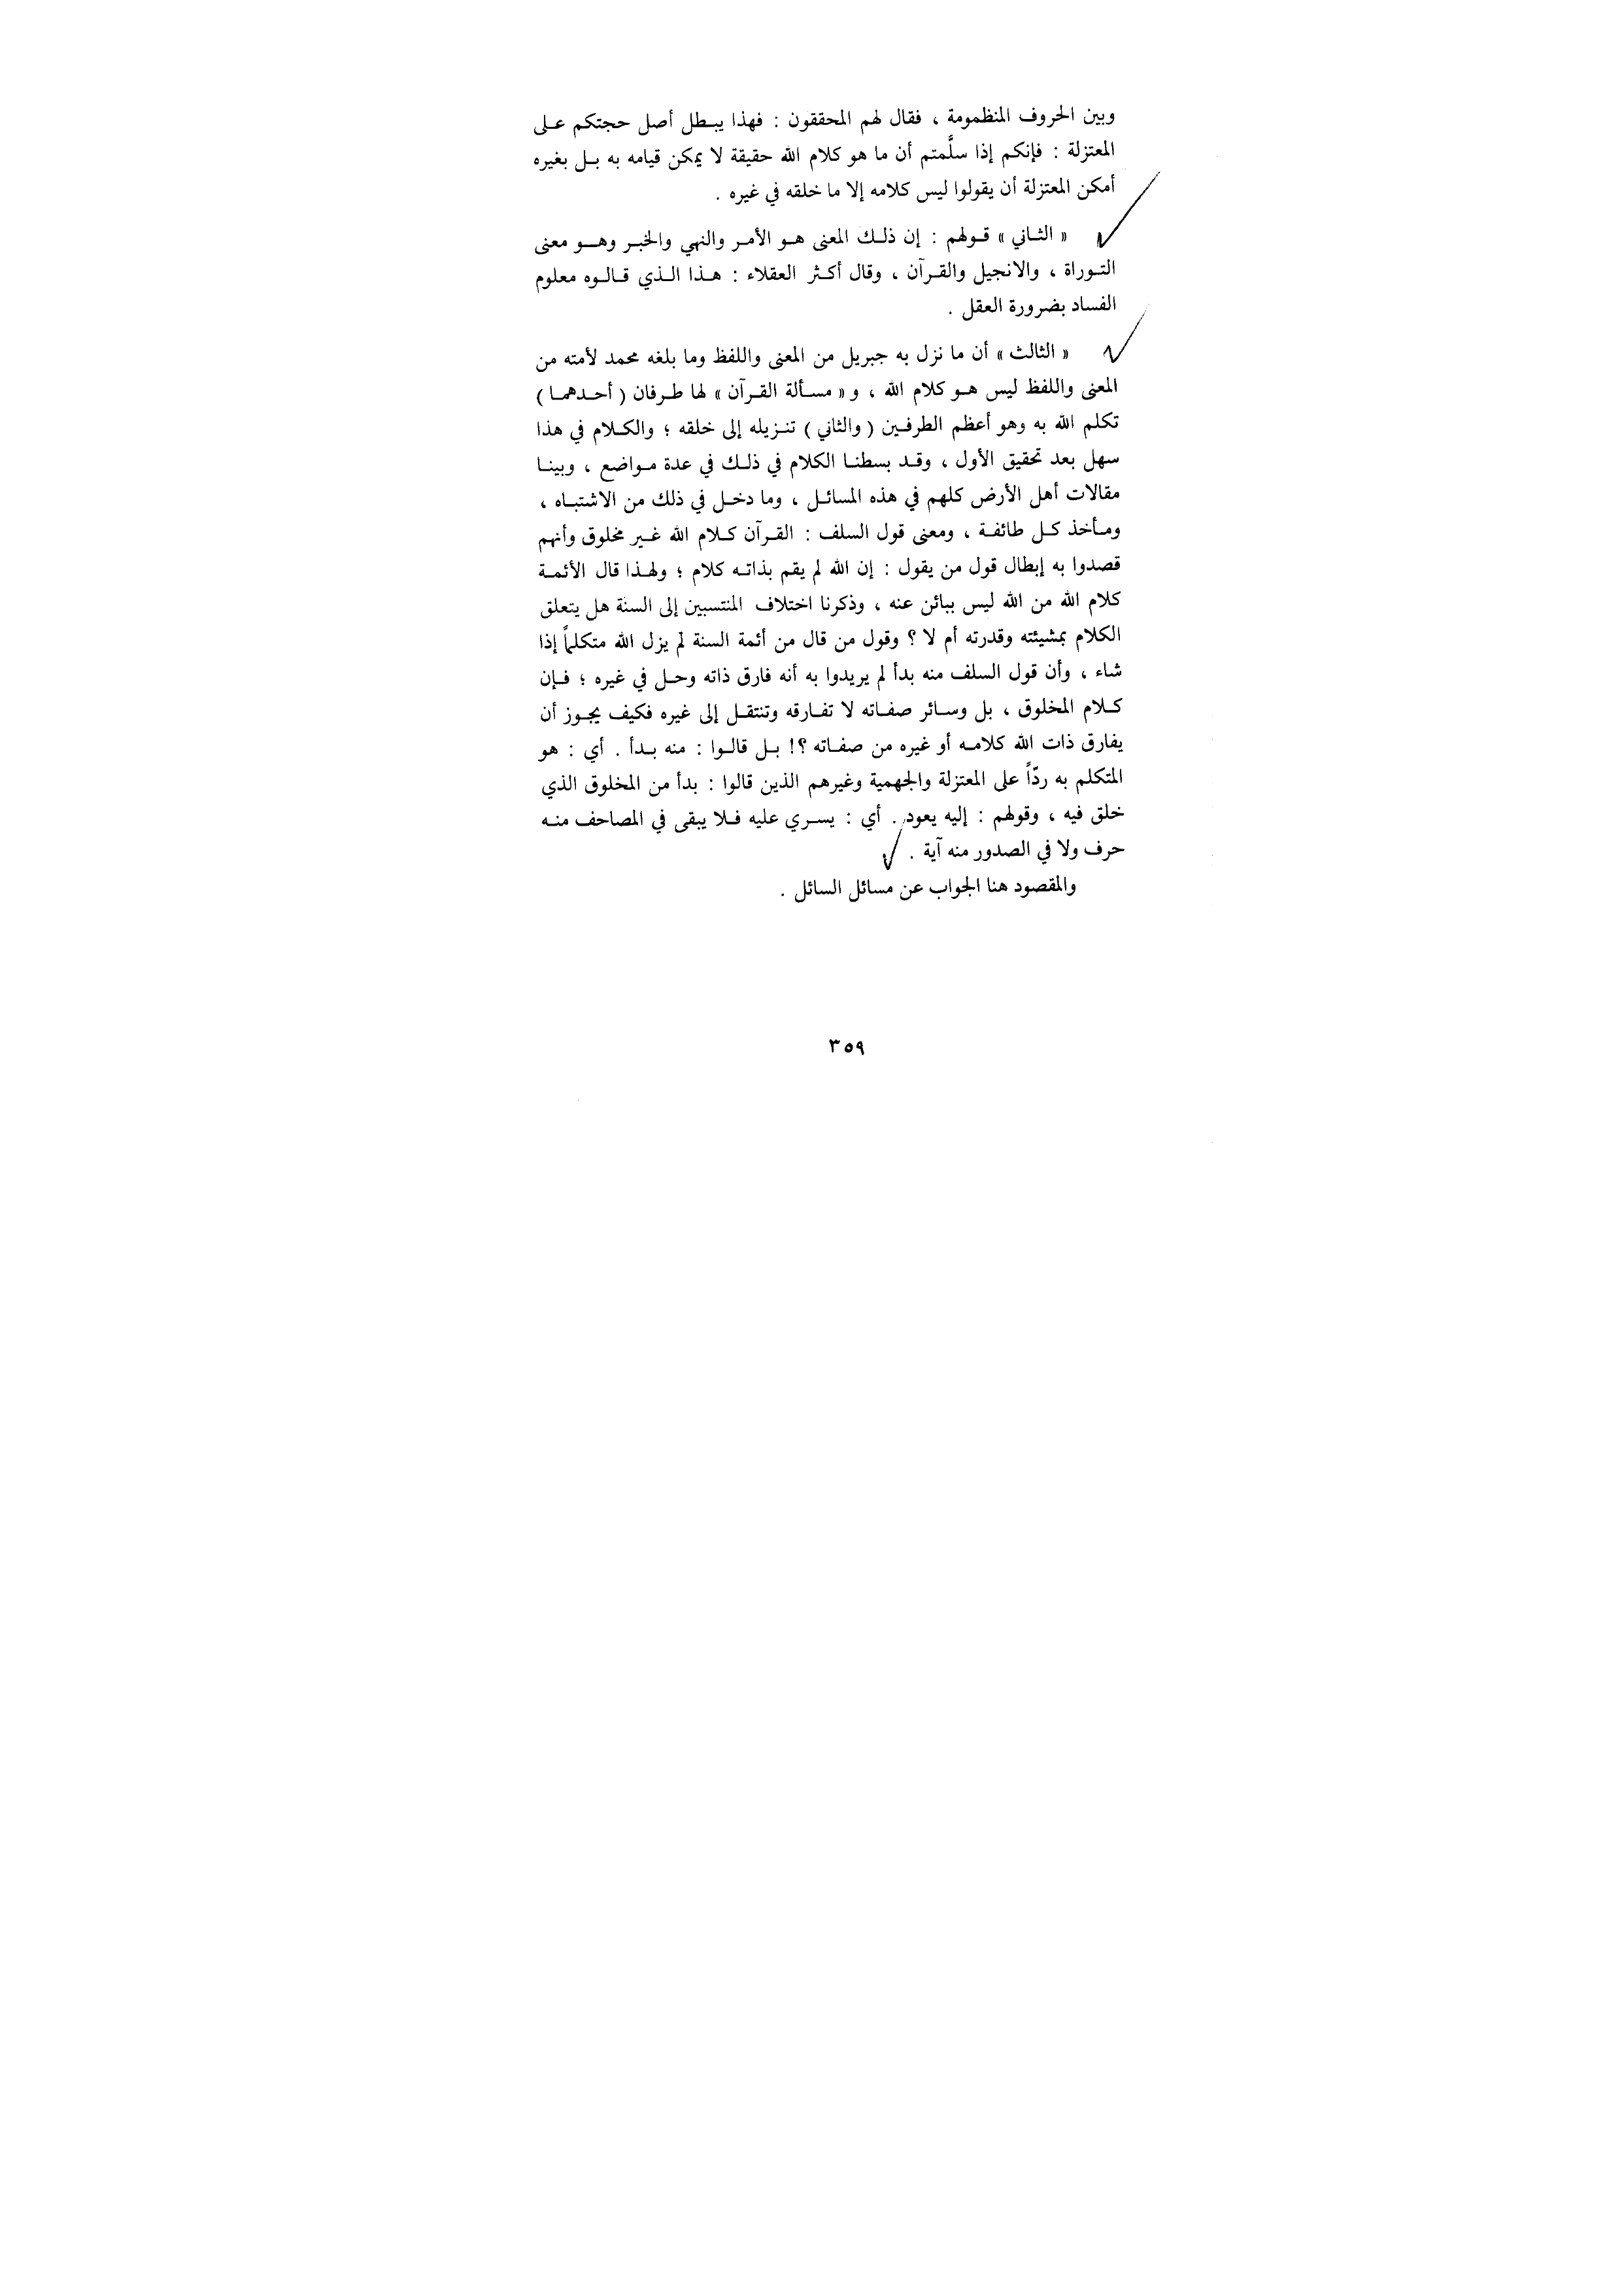 وبين الحروف المنظمومة ، فقال لهم المحققون : فهذا يبطل أصل حجتكم على
المعتزلة : فإنكم إذا سلَّمتم أن ما هو كلام الله حقيقة لا يمكن قيامه به بل بغيره
أمكن المعتزلة أن يقولوا ليس كلامه إلا ما خلقه في غيره .
« الثاني » قولهم : إن ذلك المعنى هو الأمر والنهي والخبر وهو معنى
التوراة ، والانجيل والقرآن ، وقال أكثر العقلاء : هذا الذي قالوه معلوم
الفساد بضرورة العقل .
« الثالث » أن ما نزل به جبريل من المعنى واللفظ وما بلغه محمد لأمته من
المعنى واللفظ ليس هو كلام الله ، و « مسألة القرآن » لها طرفان ( أحدهما )
تكلم الله به وهو أعظم الطرفين ( والثاني ) تنزيله إلى خلقه ؛ والكلام في هذا
سهل بعد تحقيق الأول ، وقد بسطنا الكلام في ذلك في عدة مواضع ، وبينا
مقالات أهل الأرض كلهم في هذه المسائل ، وما دخل في ذلك من الاشتباه ،
ومأخذ كل طائفة ، ومعنى قول السلف : القرآن كلام الله غير مخلوق وأنهم
قصدوا به إبطال قول من يقول : إن الله لم يقم بذاته كلام ؛ ولهذا قال الأئمة
كلام الله من الله ليس ببائن عنه ، وذكرنا اختلاف المنتسبين إلى السنة هل يتعلق
الكلام بمشيئته وقدرته أم لا ؟ وقول من قال من أئمة السنة لم يزل الله متكلماً إذا
شاء ، وأن قول السلف منه بدأ لم يريدوا به أنه فارق ذاته وحل في غيره ؛ فإن
كلام المخلوق ، بل وسائر صفاته لا تفارقه وتنتقل إلى غيره فكيف يجوز أن
يفارق ذات الله كلامه أو غيره من صفاته ؟! بل قالوا : منه بدأ . أي : هو
المتكلم به ردّاً على المعتزلة والجهمية وغيرهم الذين قالوا : بدأ من المخلوق الذي
خلق فيه ، وقولهم : إليه يعود . أي : يسري عليه فلا يبقى في المصاحف منه
حرف ولا في الصدور منه آية .
والمقصود هنا الجواب عن مسائل السائل .
٣٥٩